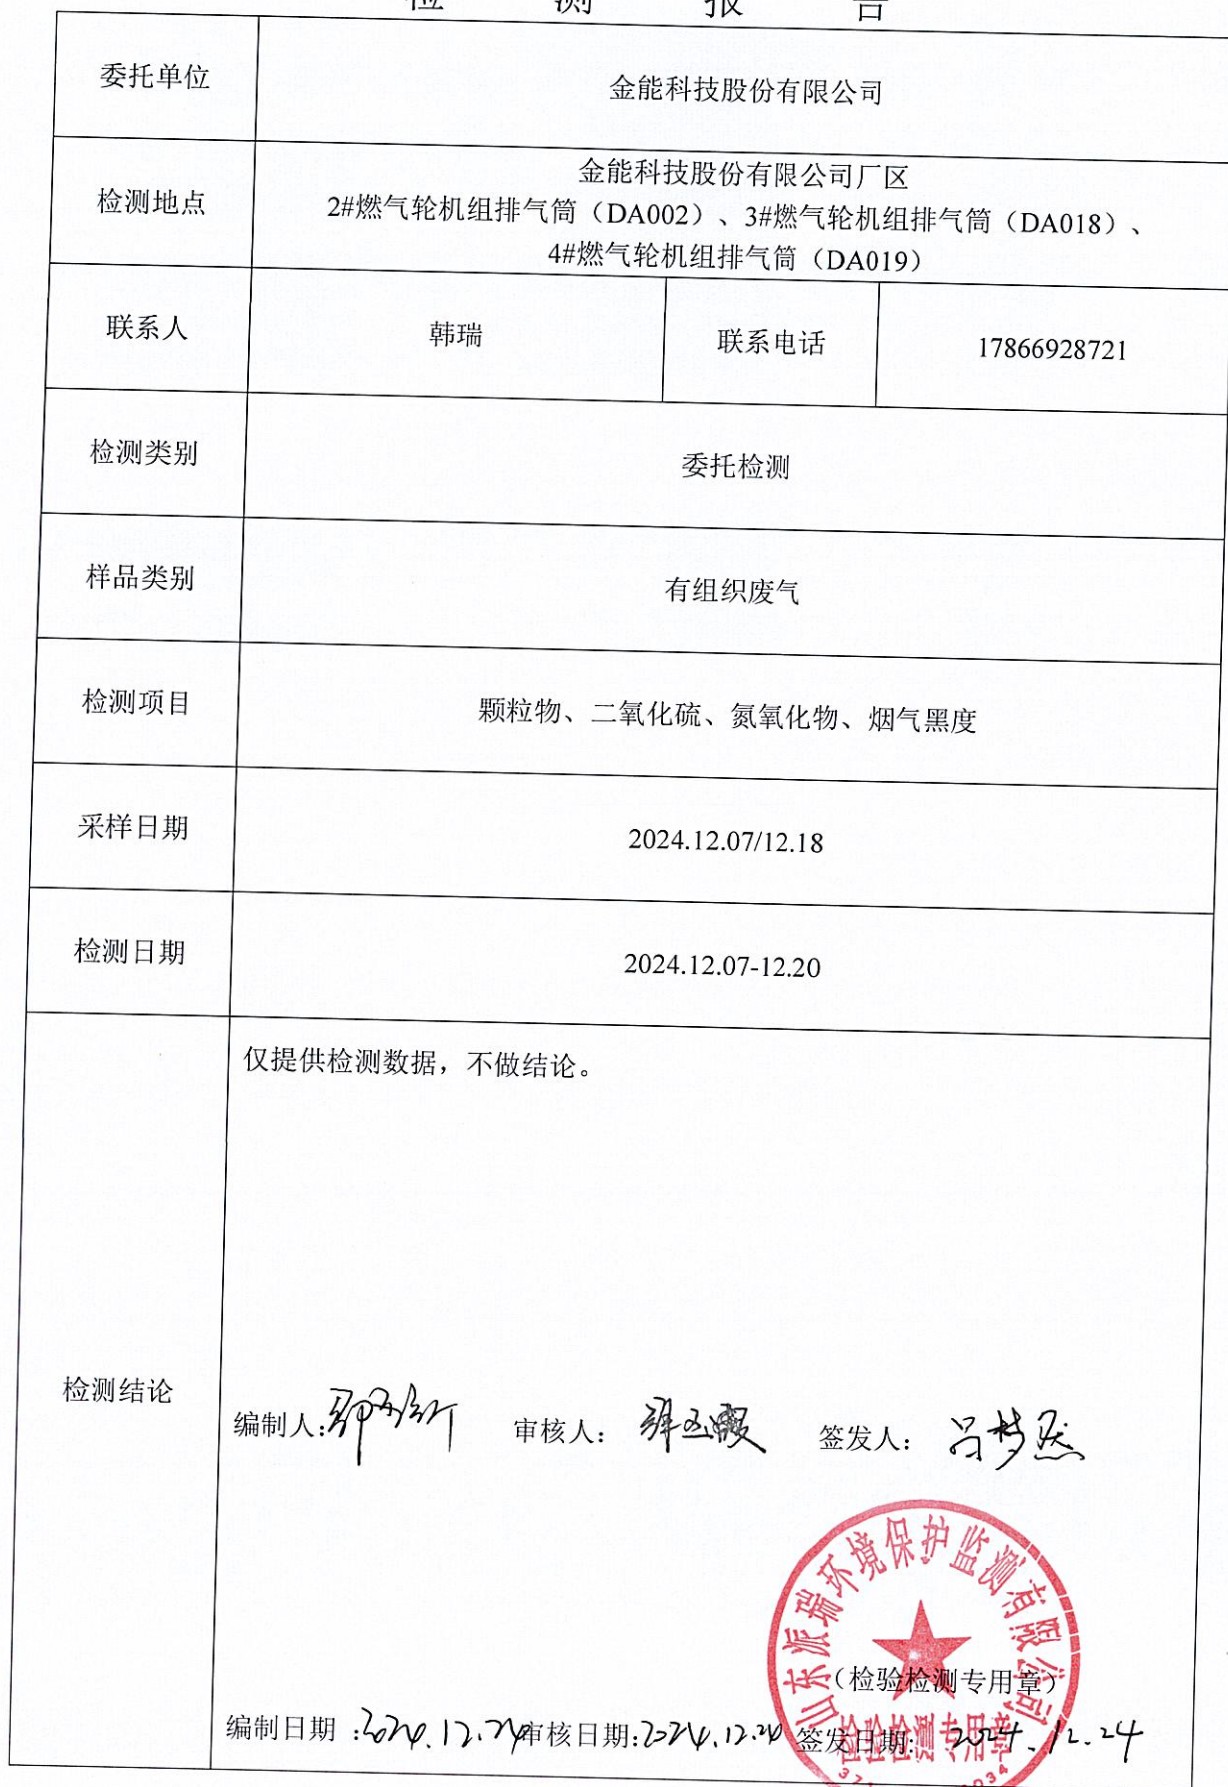 检 测 报 告
委托单位 金能科技股份有限公司
金能科技股份有限公司厂区
检测地点 2#燃气轮机组排气筒（DA002）、3#燃气轮机组排气筒（DA018）、
4#燃气轮机组排气筒（DA019）
联系人 韩瑞 联系电话 17866928721
检测类别 委托检测
样品类别 有组织废气
检测项目 颗粒物、二氧化硫、氮氧化物、烟气黑度
采样日期 2024.12.07/12.18
检测日期 2024.12.07-12.20
仅提供检测数据，不做结论。
检测结论
编制人: 审核人： 签发人： 吕梦
山东派瑞环境保护监测有限公司
（检验检测专用章）
编制日期：2024.12.24 审核日期:2024.12.24 签发日期: 2024.12.24
检验检测专用章